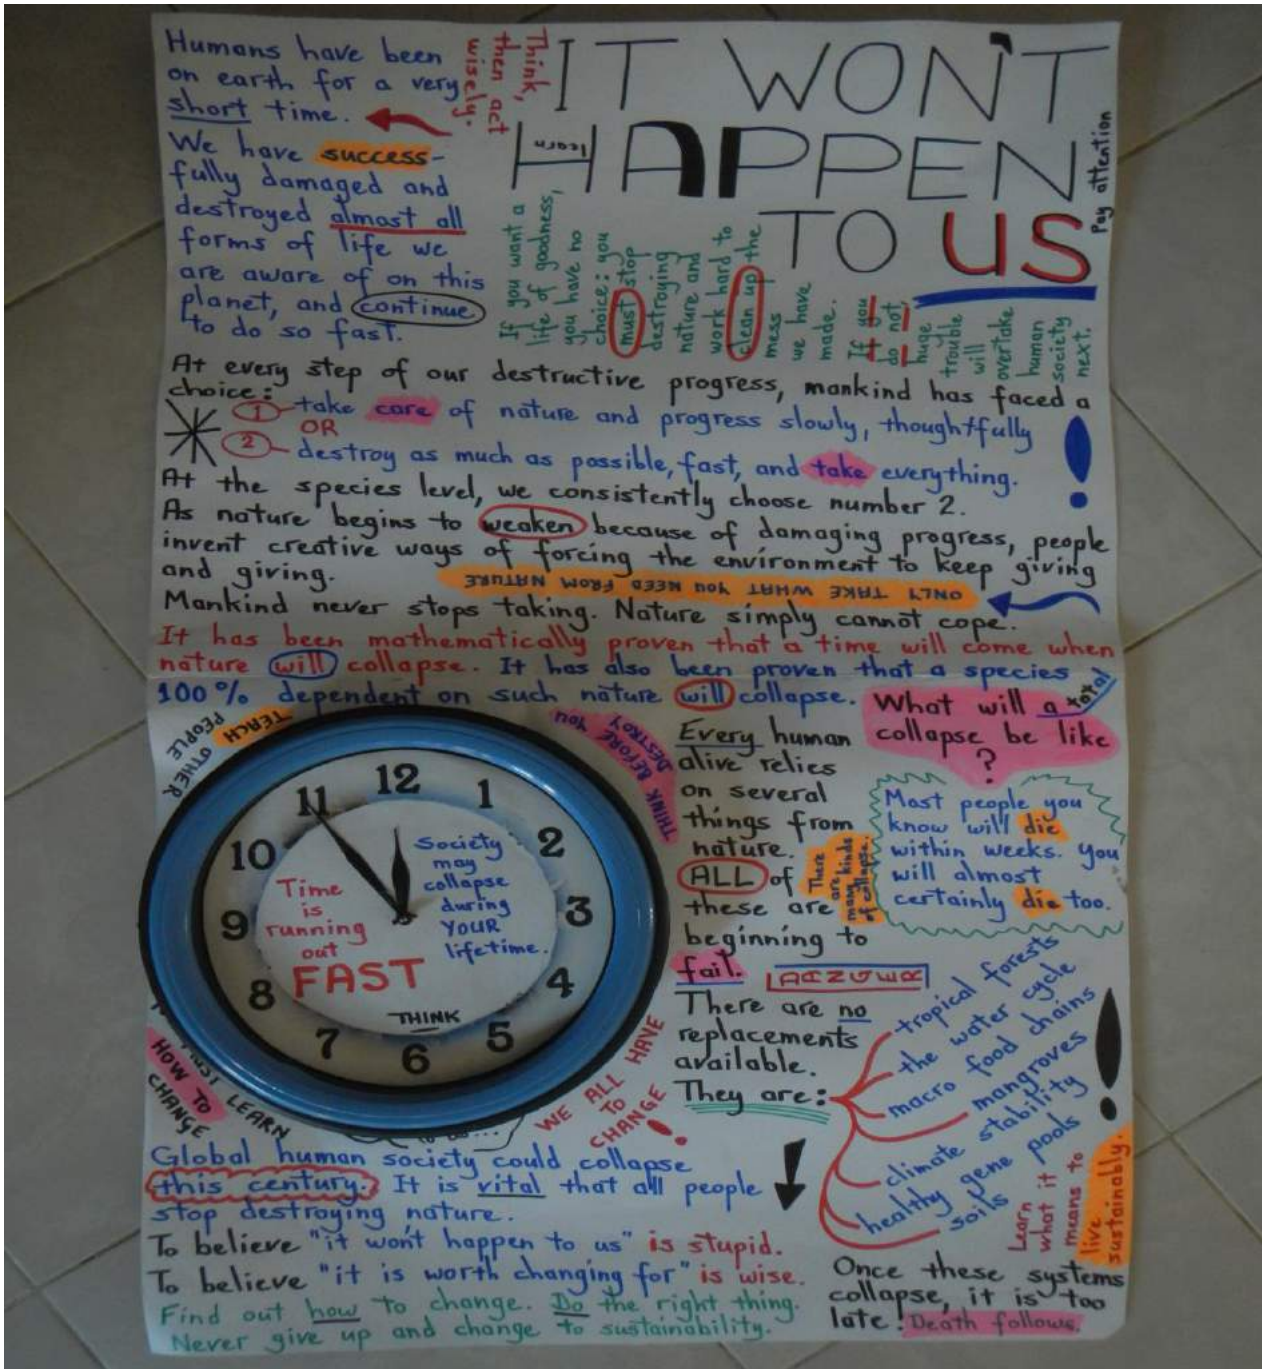 Humans have been
on earth for a very
short time.
Think,
then act
wisely.
We have success-
fully damaged and
destroyed almost all
forms of life we
are aware of on this
planet, and continue
to do so fast.
IT WON'T
HAPPEN
TO US
learn
Pay attention
If you want a
life of goodness,
you have no
choice: you
must stop
destroying
nature and
work hard to
clean up the
mess
we have
made.
If you
do not,
huge
trouble
will
overtake
human
society
next.
At every step of our destructive progress, mankind has faced a
choice:
1 take care of nature and progress slowly, thoughtfully
OR
2 destroy as much as possible, fast, and take everything.
!
At the species level, we consistently choose number 2.
As nature begins to weaken because of damaging progress, people
invent creative ways of forcing the environment to keep giving
and giving.
ONLY TAKE WHAT YOU NEED FROM NATURE
Mankind never stops taking. Nature simply cannot cope.
It has been mathematically proven that a time will come when
nature will collapse. It has also been proven that a species
100% dependent on such nature will collapse.
What will a total
collapse be like
?
Most people you
know will die
within weeks. You
will almost
certainly die too.
TEACH
OTHER
PEOPLE
THINK BEFORE YOU
DESTROY
12
1
2
3
4
5
6
7
8
9
10
11
Time
is
running
out
FAST
Society
may
collapse
during
YOUR
lifetime.
THINK
Every human
alive relies
on several
things from
nature.
ALL of
these are
beginning to
fail.
There
are
many kinds
of collapse.
DANGER
There are no
replacements
available.
They are:
tropical forests
the water cycle
macro food chains
mangroves
climate stability
healthy gene pools
soils
!
MUST LEARN
HOW TO
CHANGE
WE ALL HAVE
TO
CHANGE
!
to us...
Global human society could collapse
this century. It is vital that all people
stop destroying nature.
!
Learn
what it
means to
live
sustainably.
To believe "it won't happen to us" is stupid.
To believe "it is worth changing for" is wise.
Find out how to change. Do the right thing.
Never give up and change to sustainability.
Once these systems
collapse, it is too
late! Death follows.